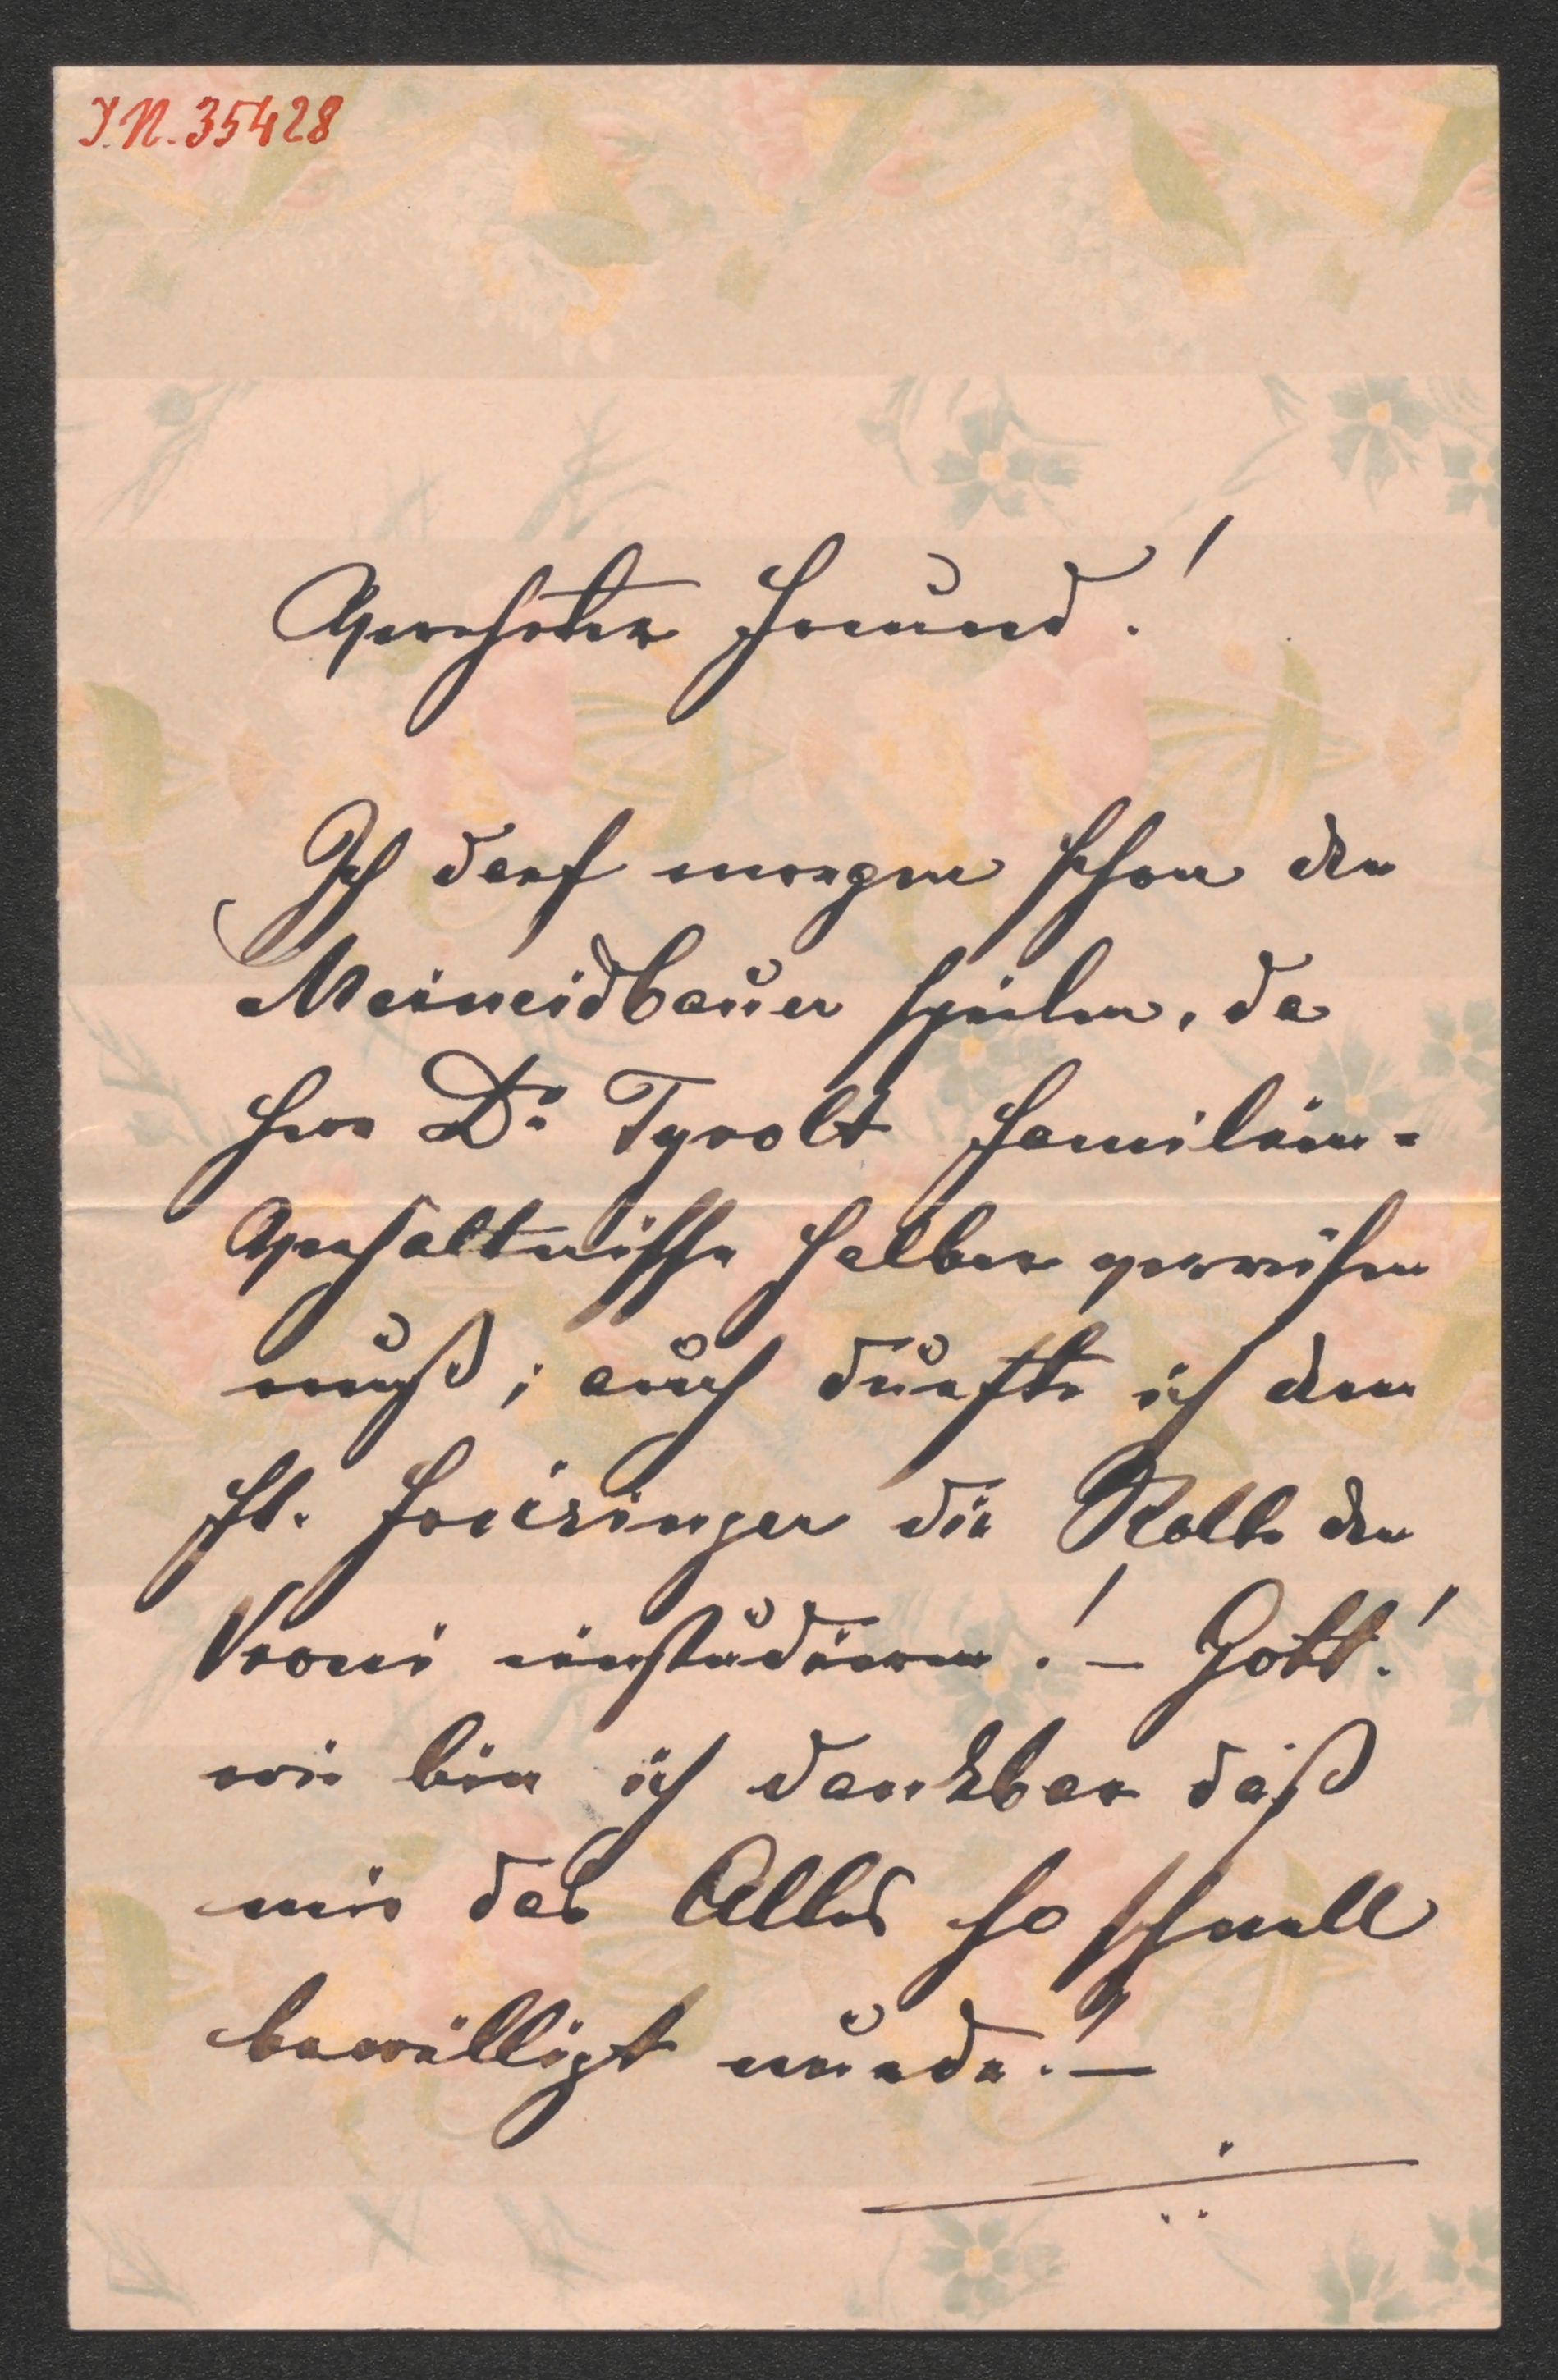 I.N. 35428
Verehrter Freund!
Ich darf morgen schon den
Meineidbauer spielen, da
Herr Dr. Tyrolt Familien-
Verhältnisse halber verreisen
muß; auch durfte ich dem
Frl. die Rolle der
Vroni einstudieren! – Gott!
wie bin ich dankbar daß
mir das Alles so schnell
bewilligt wurde! –